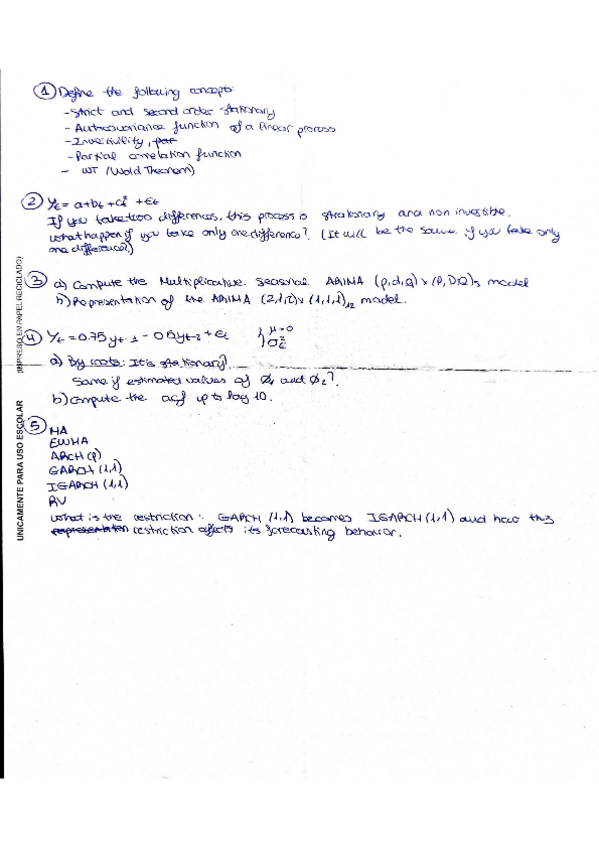 1 Define the following concepts:
- Strict and second order stationary
- Autocovariance function of a linear process
- Invertibility, par
- Partial correlation function
- WT (Wold Theorem)
2 Yt = a + bt + ct² + εt
If you take two differences, this process is stationary and non invertible.
What happen if you take only one difference? (It will be the same if you take only
one difference?)
3 a) Compute the Multiplicative seasonal ARIMA (p,d,q) x (P,D,Q)s model
b) Representation of the ARIMA (2,1,2) x (1,1,1)12 model.
4 Yt = 0.75 yt-1 - 0.5 yt-2 + εt } μ=0
σ²ε
a) By roots: It is stationary?
Same if estimated values of Ø1 and Ø2?
b) Compute the acf up to lag 10.
5 MA
EWMA
ARCH (p)
GARCH (1,1)
IGARCH (1,1)
RV
What is the restriction: GARCH (1,1) becomes IGARCH (1,1) and how this
representation restriction affects its forecasting behavior.
UNICAMENTE PARA USO ESCOLAR (IMPRESO EN PAPEL RECICLADO)